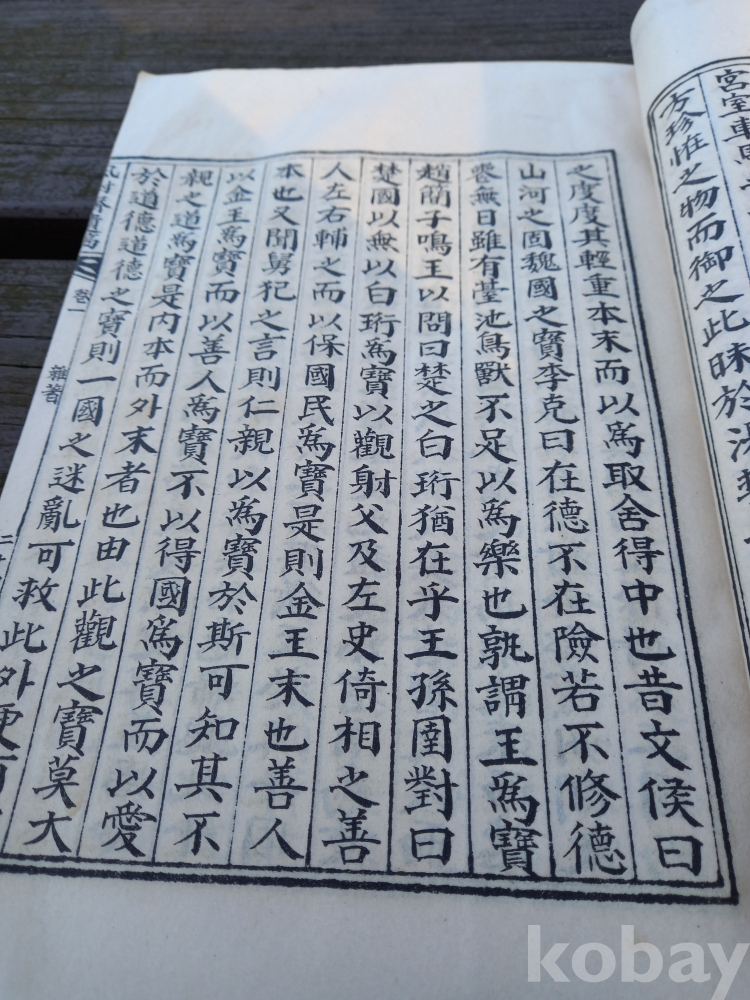 宮室車馬
方珍恠之物而御之此昧於
之度度其輕重本末而以爲取舍得中也昔文侯曰
山河之固魏國之寶李克曰在德不在險若不修德
喪無日雖有臺池鳥獸不足以爲樂也孰謂王爲寶
趙簡子鳴王以問曰楚之白珩猶在乎王孫圉對曰
楚國以無以白珩爲寶以觀射父及左史倚相之善
人左右輔之而以保國民爲寶是則金王末也善人
本也又聞舅犯之言則仁親以爲寶於斯可知其不
以金王爲寶而以善人爲寶不以得國爲寶而以愛
親之道爲寶是內本而外末者也由此觀之寶莫大
於道德道德之寶則一國之迷亂可救此外更
卷一 雜著
kobay